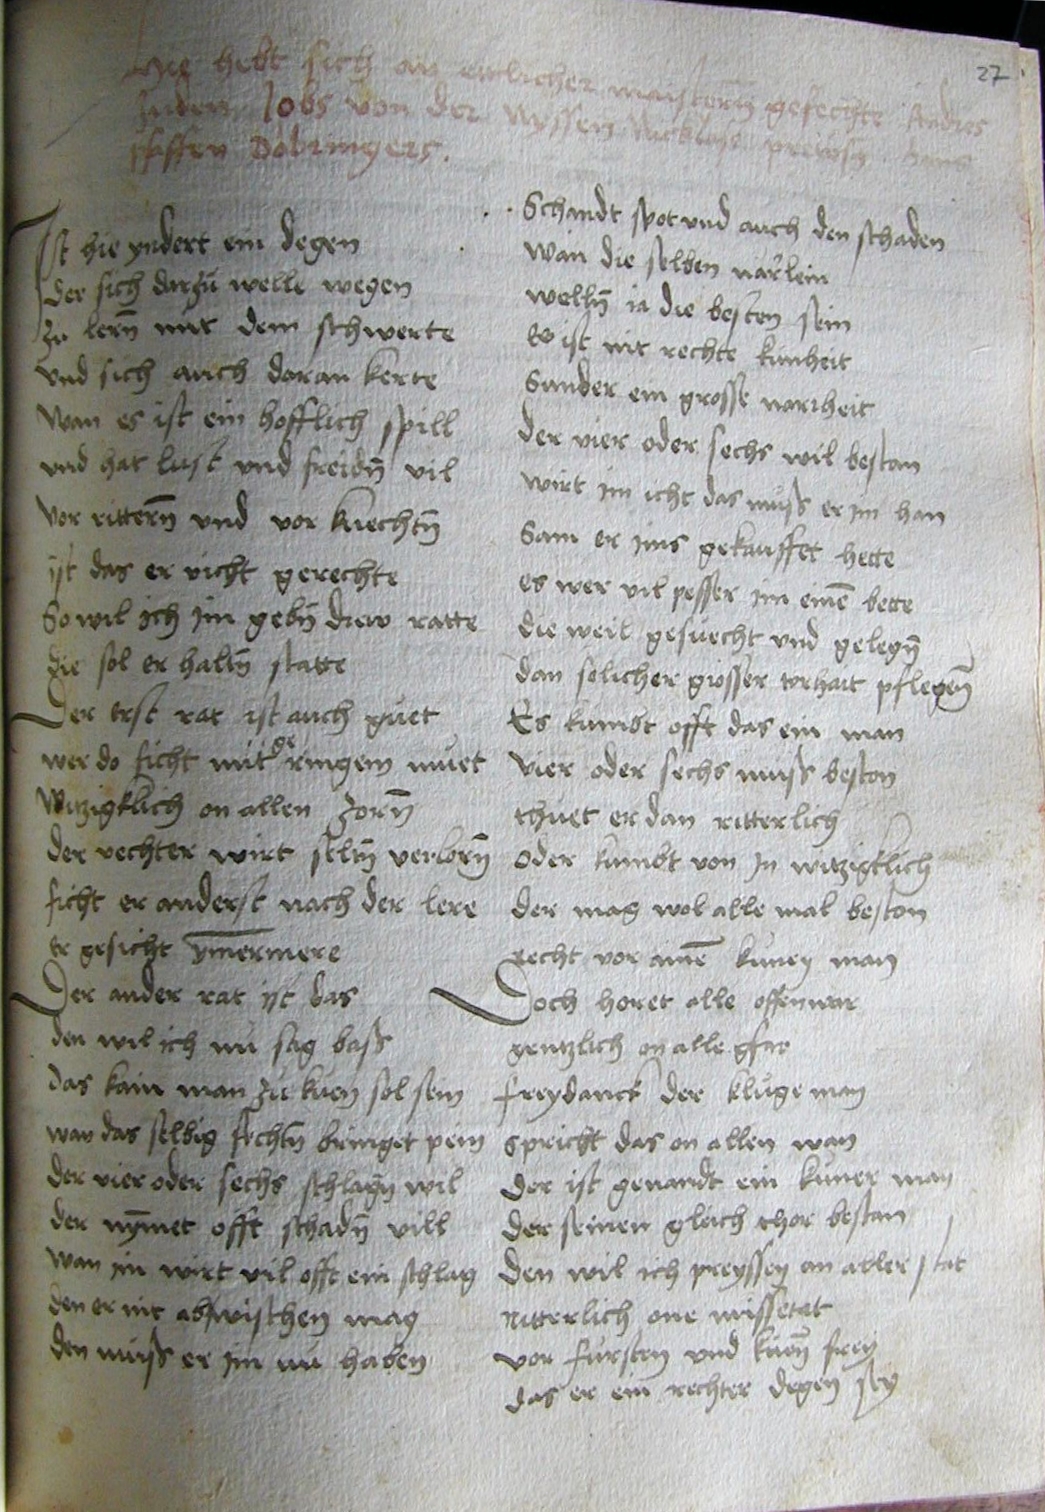 27
hie hebt sich an ettlicher maistern gefechte Andres
Juden Jobs von der nyssen Nicklass prewssen hans
pfaffen Döbringers.
Ist hie yndert ein degen
der sich darzu welle wegen
zu lern mit dem schwerte
vnd sich auch daran kerte
wan es ist ein hofflich spill
vnd hat lust vnd freidn̄ vil
vor rittern̄ vnd vor knechtn̄
ist das er vicht gerechte
So wil ich im gebn̄ diew ratte
die sol er haltn̄ statte
Der erst rat ist auch guet
wer do ficht mit geringem muet
witzigklich on allen zorn̄
der vechter wirt seltn̄ verlorn̄
ficht er anderst nach der lere
er gesicht ym̄ermere
Der ander rat ist das
den wil ich nu sag baß
das kain man zu kuen sol sein
wan das selbig fechtn̄ bringet pein
der vier oder sechs schlagn̄ wil
der nym̄et offt schadn̄ vill
wan im wirt vil offt ein schlag
den er nit abwischen mag
den muß er im nu haben
Schandt spot vnd auch den schaden
wan die selben narlein
welln̄ ia die besten sein
Es ist nit rechte kunheit
Sunder ein grosse narrheit
der vier oder sechs wil bestan
wirt im icht das muß er im han
Sam er ims gekauffet hette
es wer vil pesser im eine͂ bette
die weil gesuecht vnd gelegn̄
dan solicher grosser torhait pflegen̄
Es kumbt offt das ein man
vier oder sechs muß beston
thuet er dan ritterlich
oder kumbt von in witzigklich
der mag wol alle mal beston
recht vor aine͂ kunen man
Doch horet alle offenwar
gentzlich on alle gfar
freydanck der kluge man
spricht das on allen wan
der ist genandt ein kuner man
der seinen gleich thor bestan
den wil ich preyssen an aller stat
ritterlich one missetat
vor fursten vnd kuen̄ frey
das er ein rechter degen sey